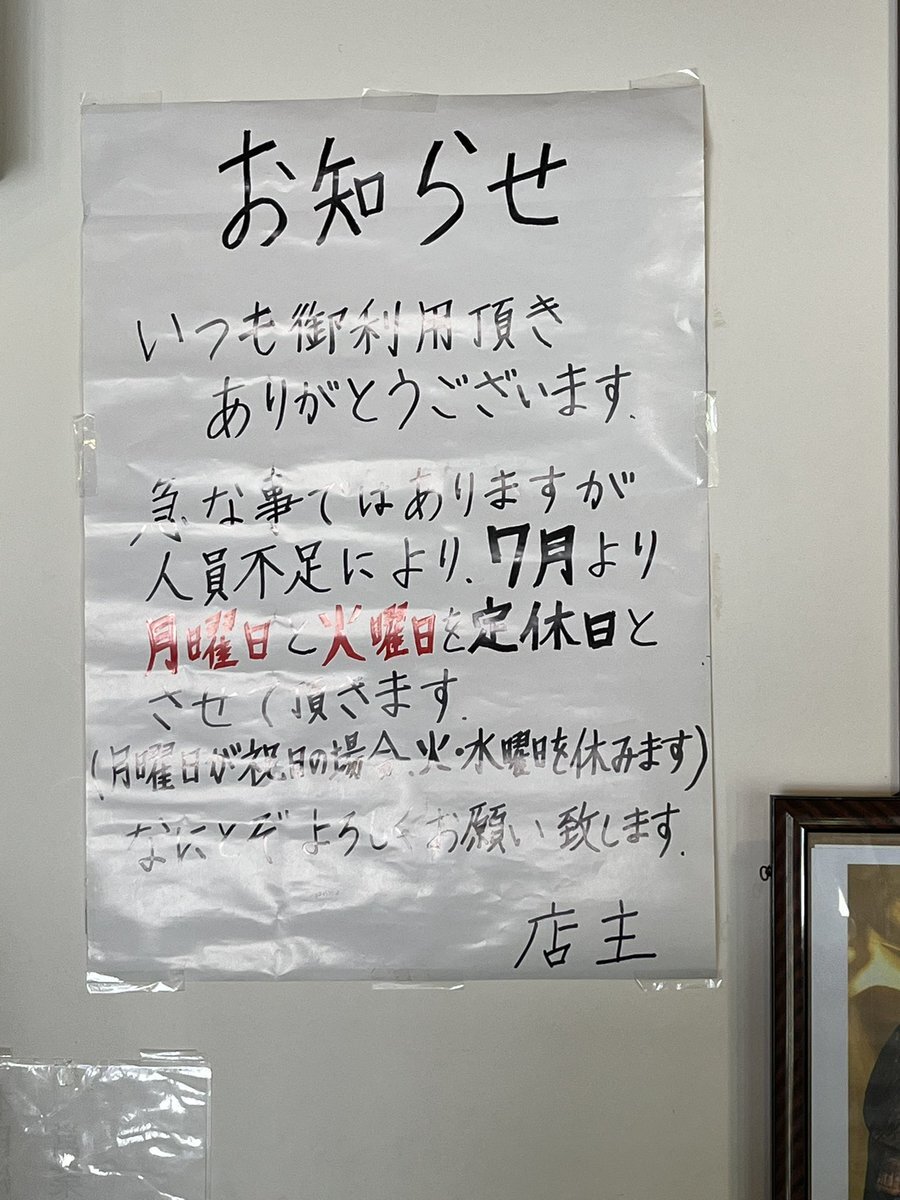 お知らせ
いつも御利用頂き
ありがとうございます.
急な事ではありますが
人員不足により、7月より
月曜日と火曜日を定休日と
させて頂きます.
(月曜日が祝日の場合、火・水曜日を休みます)
なにとぞよろしくお願い致します.
店主